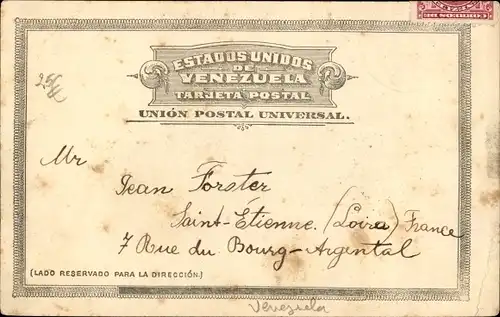 ESTADOS UNIDOS
DE
VENEZUELA
TARJETA POSTAL
UNIÓN POSTAL UNIVERSAL.
Mr
Jean Forster
Saint-Étienne (Loire) France
7 Rue du Bourg-Argental
(LADO RESERVADO PARA LA DIRECCIÓN.)
Venezuela